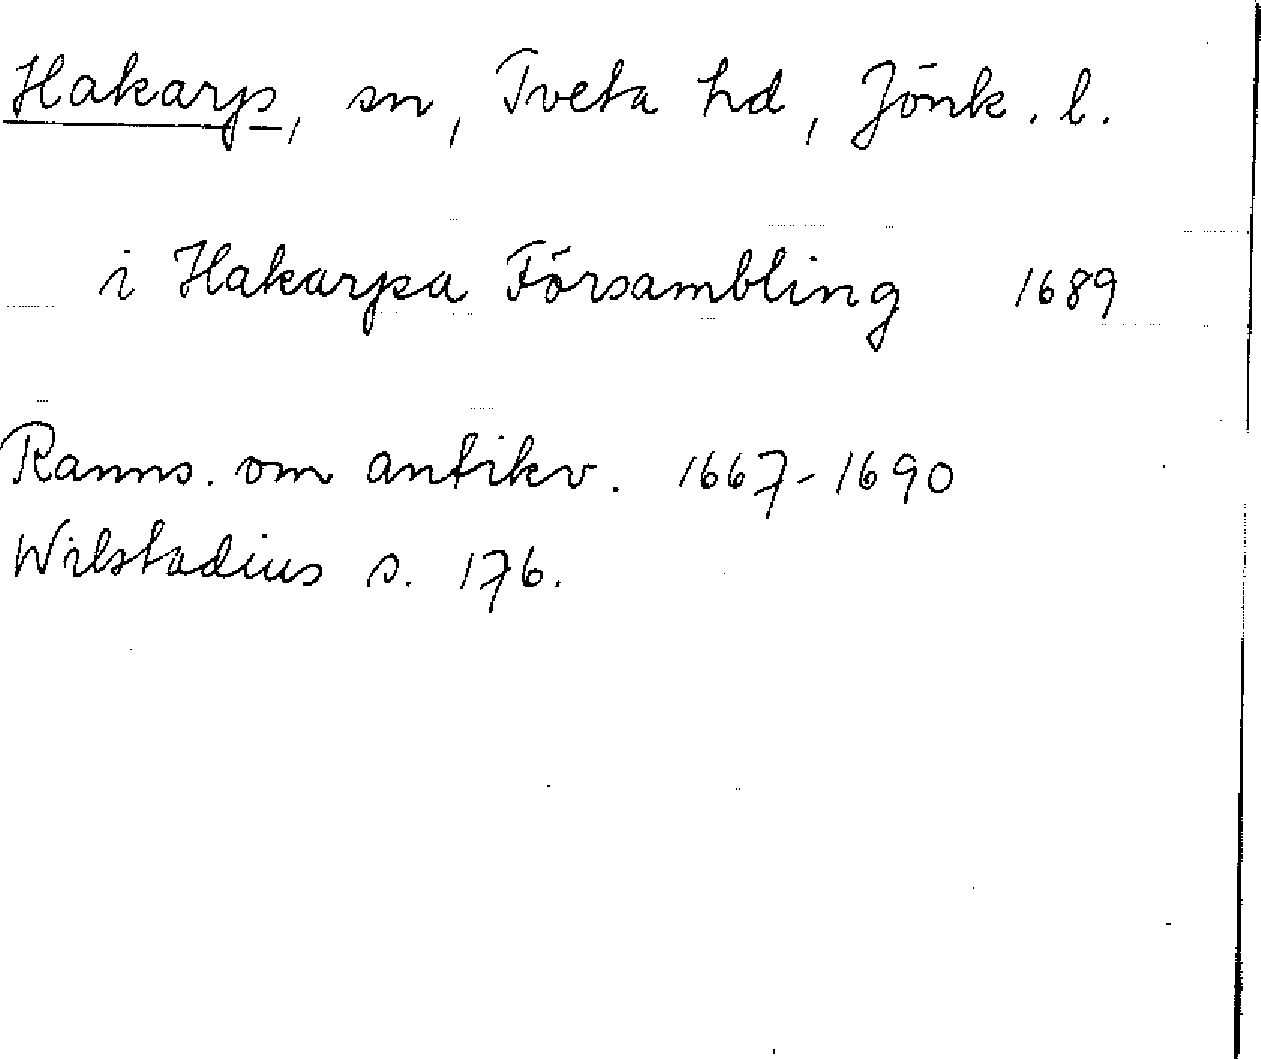 Hakarp, sn, Tveta hd, Jönk. l.
i Hakarpa Försambling 1689
Ranns. om antikv. 1667-1690
Wilstadius s. 176.